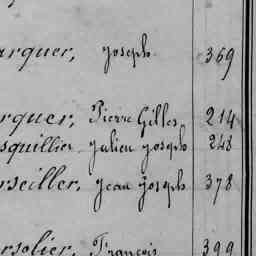 arquer, joseph 369
rquer, Pierre Gilles, 214
squillier Julien joseph 248
rseiller, jean joseph 378
rsolier, François 399